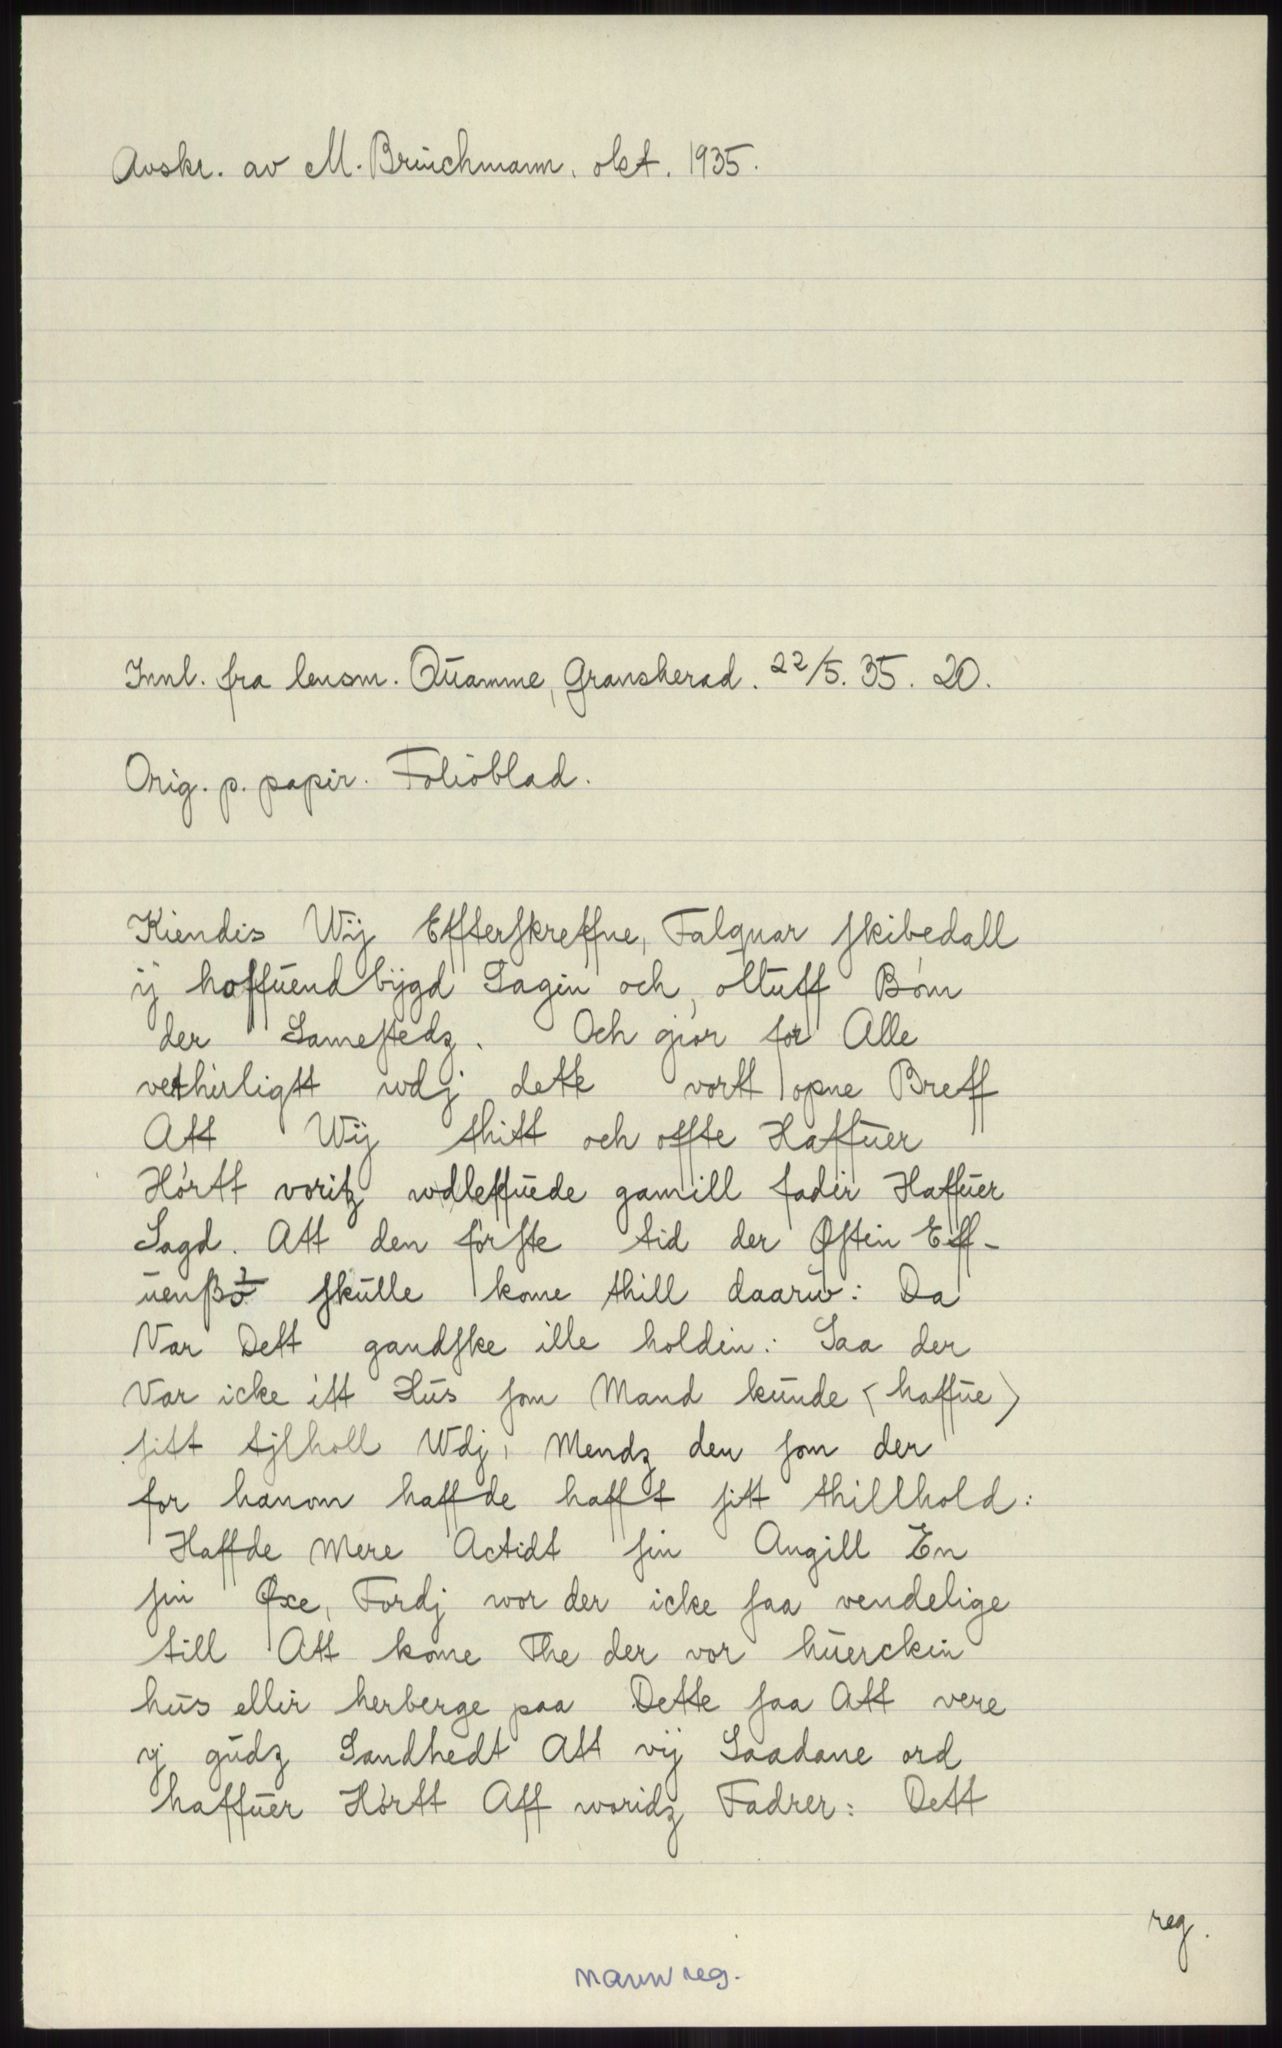 Avskr. av M. Brinchmann, okt. 1935.
Innl. fra lensm. Quamme, Gransherad. 22/5. 35. 20.
Orig. p. papir. Folioblad.
Kiendis Wij Effterskreffne, Falquar skibedall
ij hoffuend bÿgd Sagin och, olluff Bøm
der Samestedz. Och giør for Alle
vethirligtt wdj dette vortt opne Breff
Att Wij thitt och offte Haffuer
Hørtt voritz wdleffuede gamill fadir Haffuer
Sagd. Att den første tid der Østin Eff-
uenssø? skulle kome thill daaruw: Da
Var Dett gandske ille holdin: Saa der
Var icke itt Hus som Mand kunde <haffue>
sitt tjlholl Wdj, Mendz den som der
for hanom haffde hafft sitt thillhold:
Haffde Mere Actidt sin Angill En
sin Øxe, Fordj wor der icke saa vendelige
till Att kome The der vor huerckin
hus ellir herberge paa Dette saa Att vere
ij gudz Sandhedt Att vij Saadane ord
haffuer Hørtt Aff woridz Fadrer: Dett
reg.
navnreg.